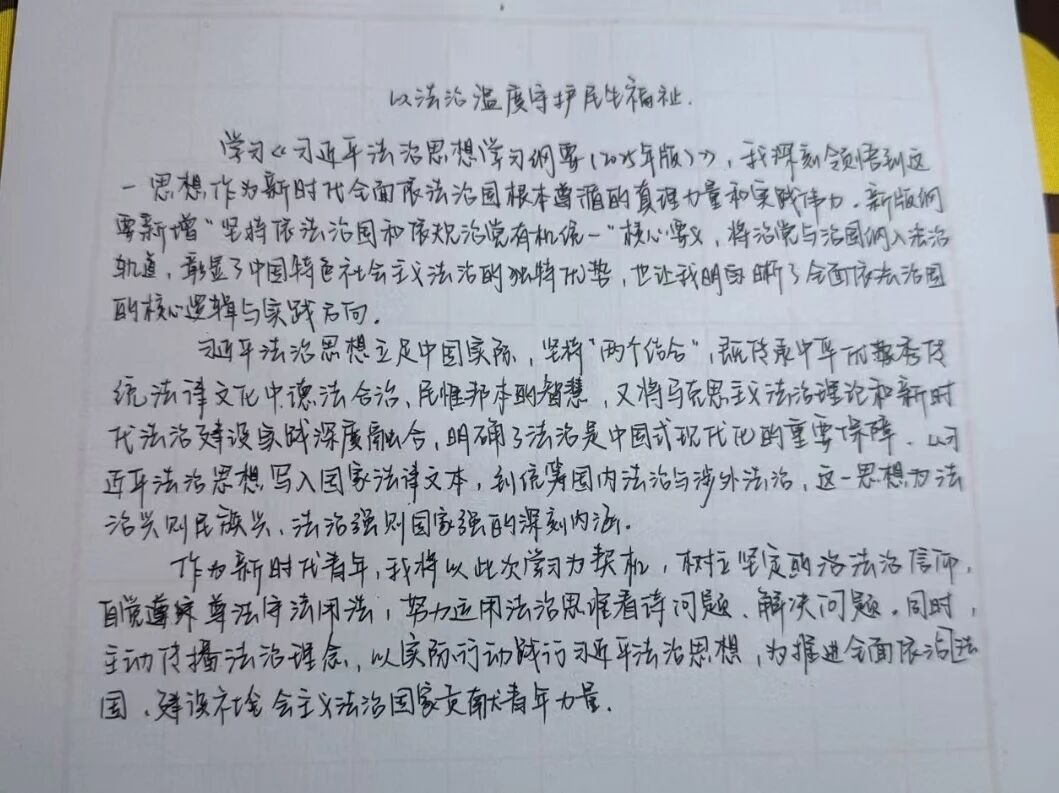 以法治温度守护民生福祉.
学习《习近平法治思想学习纲要(2025年版)》，我深刻领悟到这
一思想作为新时代全面依法治国根本遵循的真理力量和实践伟力.新版纲
要新增"坚持依法治国和依规治党有机统一"核心要义，将治党与治国纳入法治
轨道，彰显了中国特色社会主义法治的独特优势，也让我明晰了全面依法治国
的核心逻辑与实践方向.
习近平法治思想立足中国实际，坚持"两个结合"，既传承中华优秀传
统法律文化中德法合治、民惟邦本的智慧，又将马克思主义法治理论和新时
代法治建设实践深度融合，明确了法治是中国式现代化的重要保障.从习
近平法治思想写入国家法律文本，到统筹国内法治与涉外法治，这一思想为法
治兴则民族兴、法治强则国家强的深刻内涵.
作为新时代青年，我将以此次学习为契机，树立坚定的法治信仰，
自觉尊法守法用法，努力运用法治思维看待问题、解决问题.同时，
主动传播法治理念，以实际行动践行习近平法治思想，为推进全面依法治
国、建设社会主义法治国家贡献青年力量.